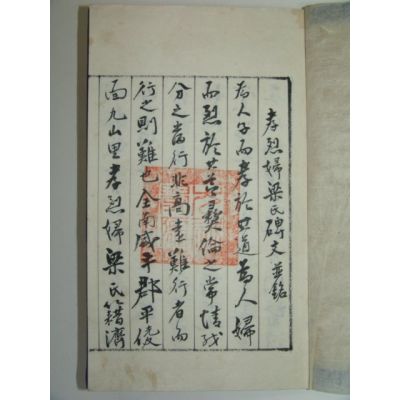 孝烈婦梁氏碑文並銘
爲人子而孝於其道爲人婦
而烈於其善彛倫之常情職
分之當行非高遠難行者而
行之則難也全南咸平郡平陵
面九山里孝烈婦梁氏籍濟